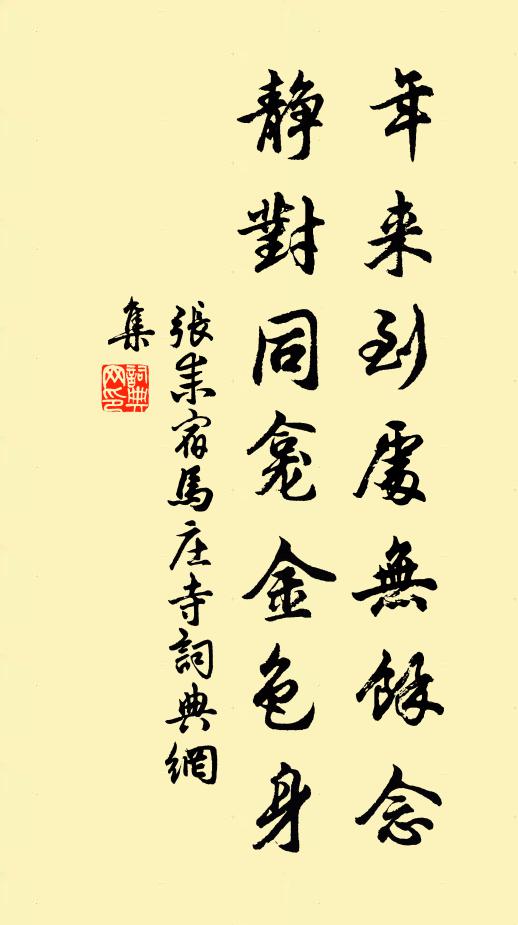 年来到處無餘念
静對同龕金色身
張耒宿馬庄寺詞典網
集
詞典网印